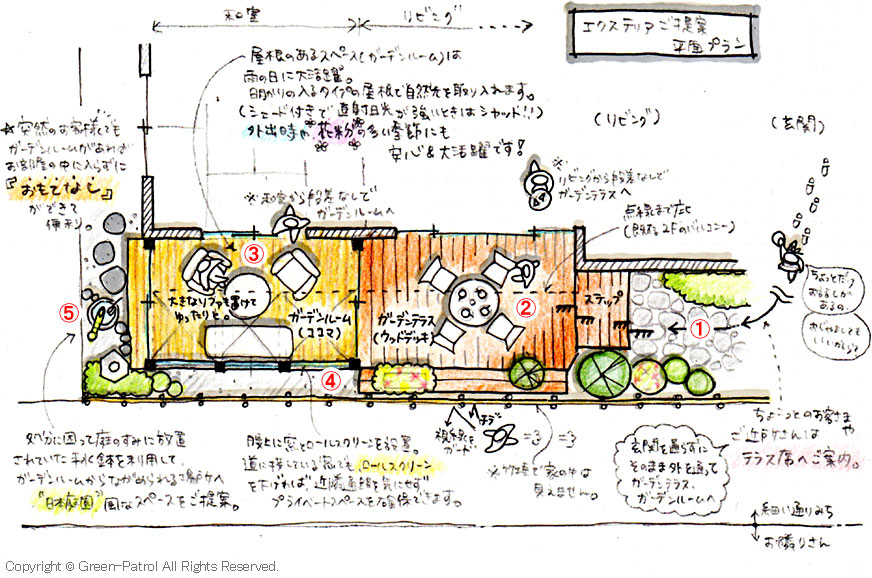 和室
リビング
エクステリアご提案
平面プラン
屋根のあるスペース(ガーデンルーム)は
雨の日に大活躍。
明かりの入るタイプの屋根で自然光を取り入れます。
(シェード付きで直射日光が強いときはシャット!!)
外出時や花粉の多い季節にも
安心&大活躍です!
☆突然のお客様でも
ガーデンルームがあれば
お部屋の中に入らずに
『おもてなし』
ができて
便利。
(リビング)
(玄関)
※和室から段差なしで
ガーデンルームへ
※
リビングから段差なしで
ガーデンテラスへ
点線まで庇
(既存2Fのバルコニー)
③
大きなソファを置けて
ゆったりと。
ガーデンルーム
(ココマ)
ガーデンテラス
(ウッドデッキ)
②
ステップ
①
ちょっとだけ
おじゃましても
いいかしら?
⑤
④
処分に困って庭のすみに放置
されていた手水鉢を利用して
ガーデンルームからながめられる場所へ
"日本庭園"風なスペースをご提案。
腰上に窓とロールスクリーンを設置。
道に接している窓でもロールスクリーン
を下げれば近隣通路を気にせず
プライベートスペースを確保できます。
視線を
ガード
=3 =3
※竹垣で家の中は
見えません。
玄関を通らずに
そのまま外を通って
ガーデンテラス、
ガーデンルームへ
ちょこっとのお客さまや
ご近所さんは
テラス席へご案内。
細い通りみち
お隣りさん
Copyright © Green-Patrol All Rights Reserved.